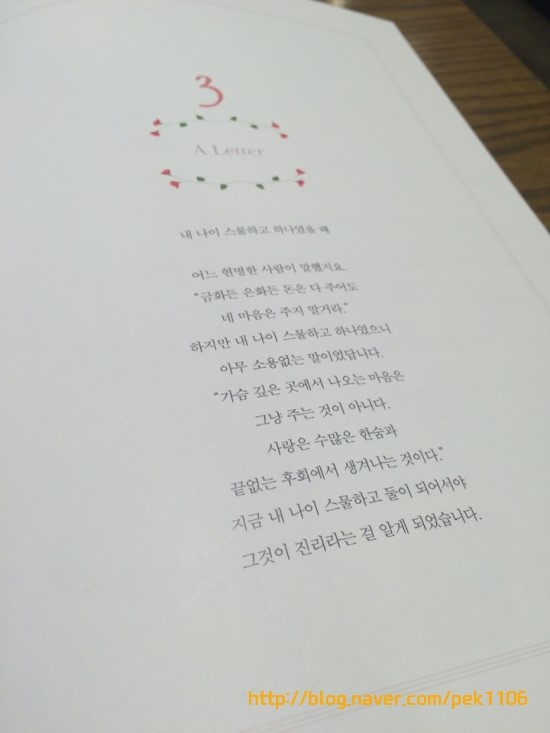 3
A Letter
내 나이 스물하고 하나였을 때
어느 현명한 사람이 말했지요.
"금화든 은화든 돈은 다 주어도
네 마음은 주지 말거라."
하지만 내 나이 스물하고 하나였으니
아무 소용없는 말이었답니다.
"가슴 깊은 곳에서 나오는 마음은
그냥 주는 것이 아니다.
사랑은 수많은 한숨과
끝없는 후회에서 생겨나는 것이다."
지금 내 나이 스물하고 둘이 되어서야
그것이 진리라는 걸 알게 되었습니다.
http://blog.naver.com/pek1106